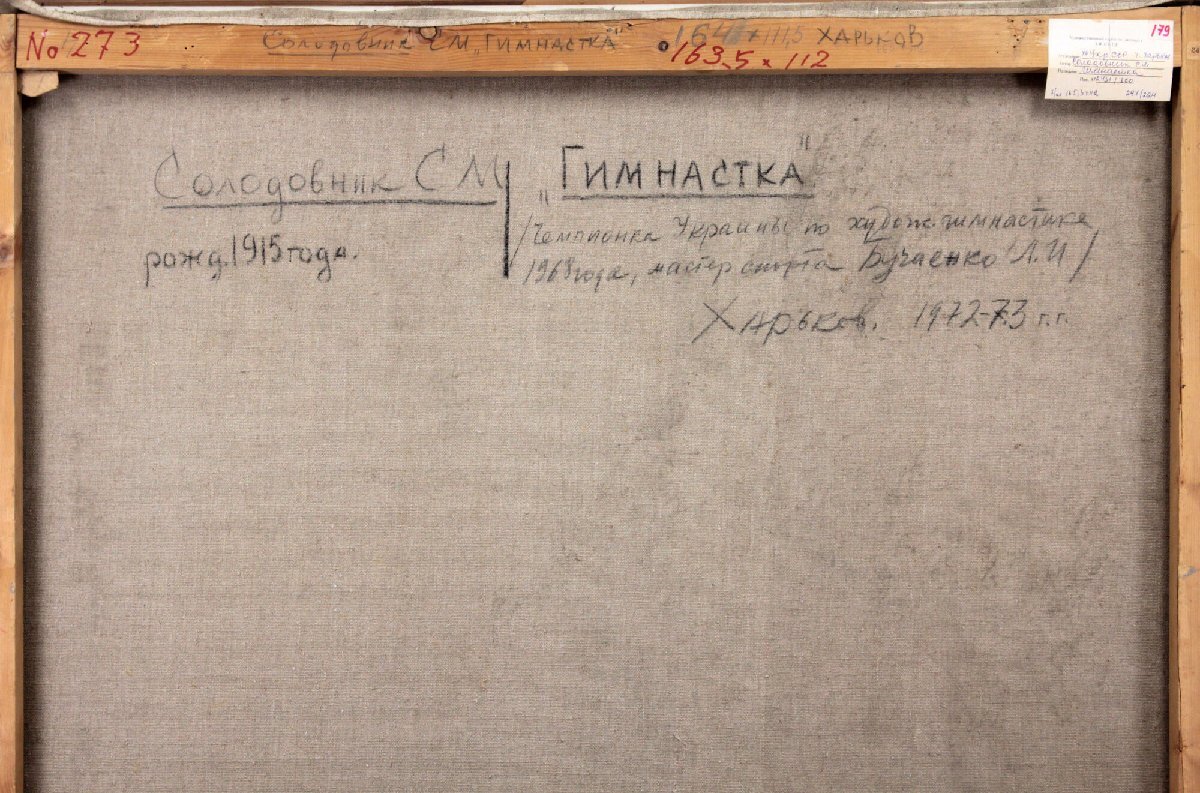 No 273
Солодовник С М „ГИМНАСТКА"
ХАРЬКОВ
163,5 x 112
179
Солодовник С М
„ГИМНАСТКА"
рожд. 1915 года.
/Чемпионка Украины по худож. гимнастике
1968 года, мастер спорта Бучаенко Л. И/
Харьков. 1972-73 г.г.